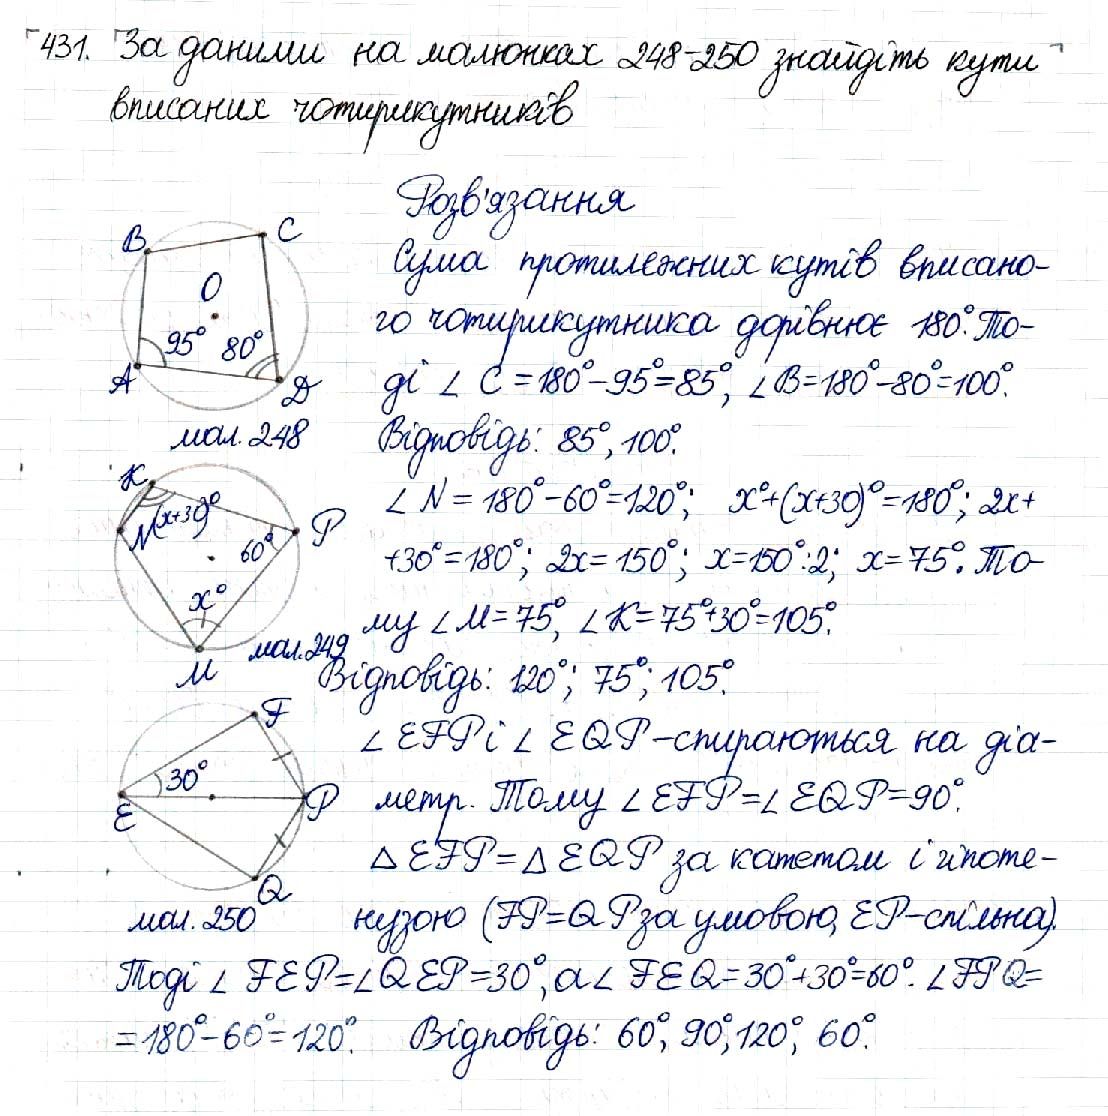 431. За даними на малюнках 248-250 знайдіть кути
вписаних чотирикутників
Розв'язання
B
C
O
95° 80°
A
D
мал. 248
Сума протилежних кутів вписано-
го чотирикутника дорівнює 180°. То-
ді ∠ C = 180° - 95° = 85°, ∠ B = 180° - 80° = 100°.
Відповідь: 85°, 100°.
K
N (x+30)°
P
60°
x°
M
мал. 249
∠ N = 180° - 60° = 120°; x° + (x+30)° = 180°; 2x +
+30° = 180°; 2x = 150°; x = 150° : 2; x = 75°. То-
му ∠ M = 75°, ∠ K = 75° + 30° = 105°.
Відповідь: 120°; 75°; 105°.
F
30°
E
P
Q
мал. 250
∠ EFP і ∠ EQP - спираються на діа-
метр. Тому ∠ EFP = ∠ EQP = 90°.
△ EFP = △ EQP за катетом і гіпоте-
нузою (FP = QP за умовою, EP - спільна).
Тоді ∠ FEP = ∠ QEP = 30°, а ∠ FEQ = 30° + 30° = 60°. ∠ FPQ =
= 180° - 60° = 120°. Відповідь: 60°, 90°, 120°, 60°.